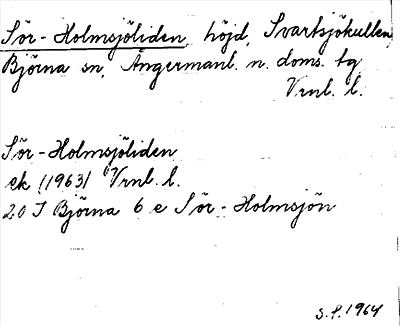 Sör-Holmsjöliden, höjd, Svartsjökullen,
Björna sn, Ångermanl. n. doms. tg
Vrnl. l.
Sör-Holmsjöliden
ek (1963) Vrnl. l.
20 J Björna 6 e Sör-Holmsjön
S.P. 1964